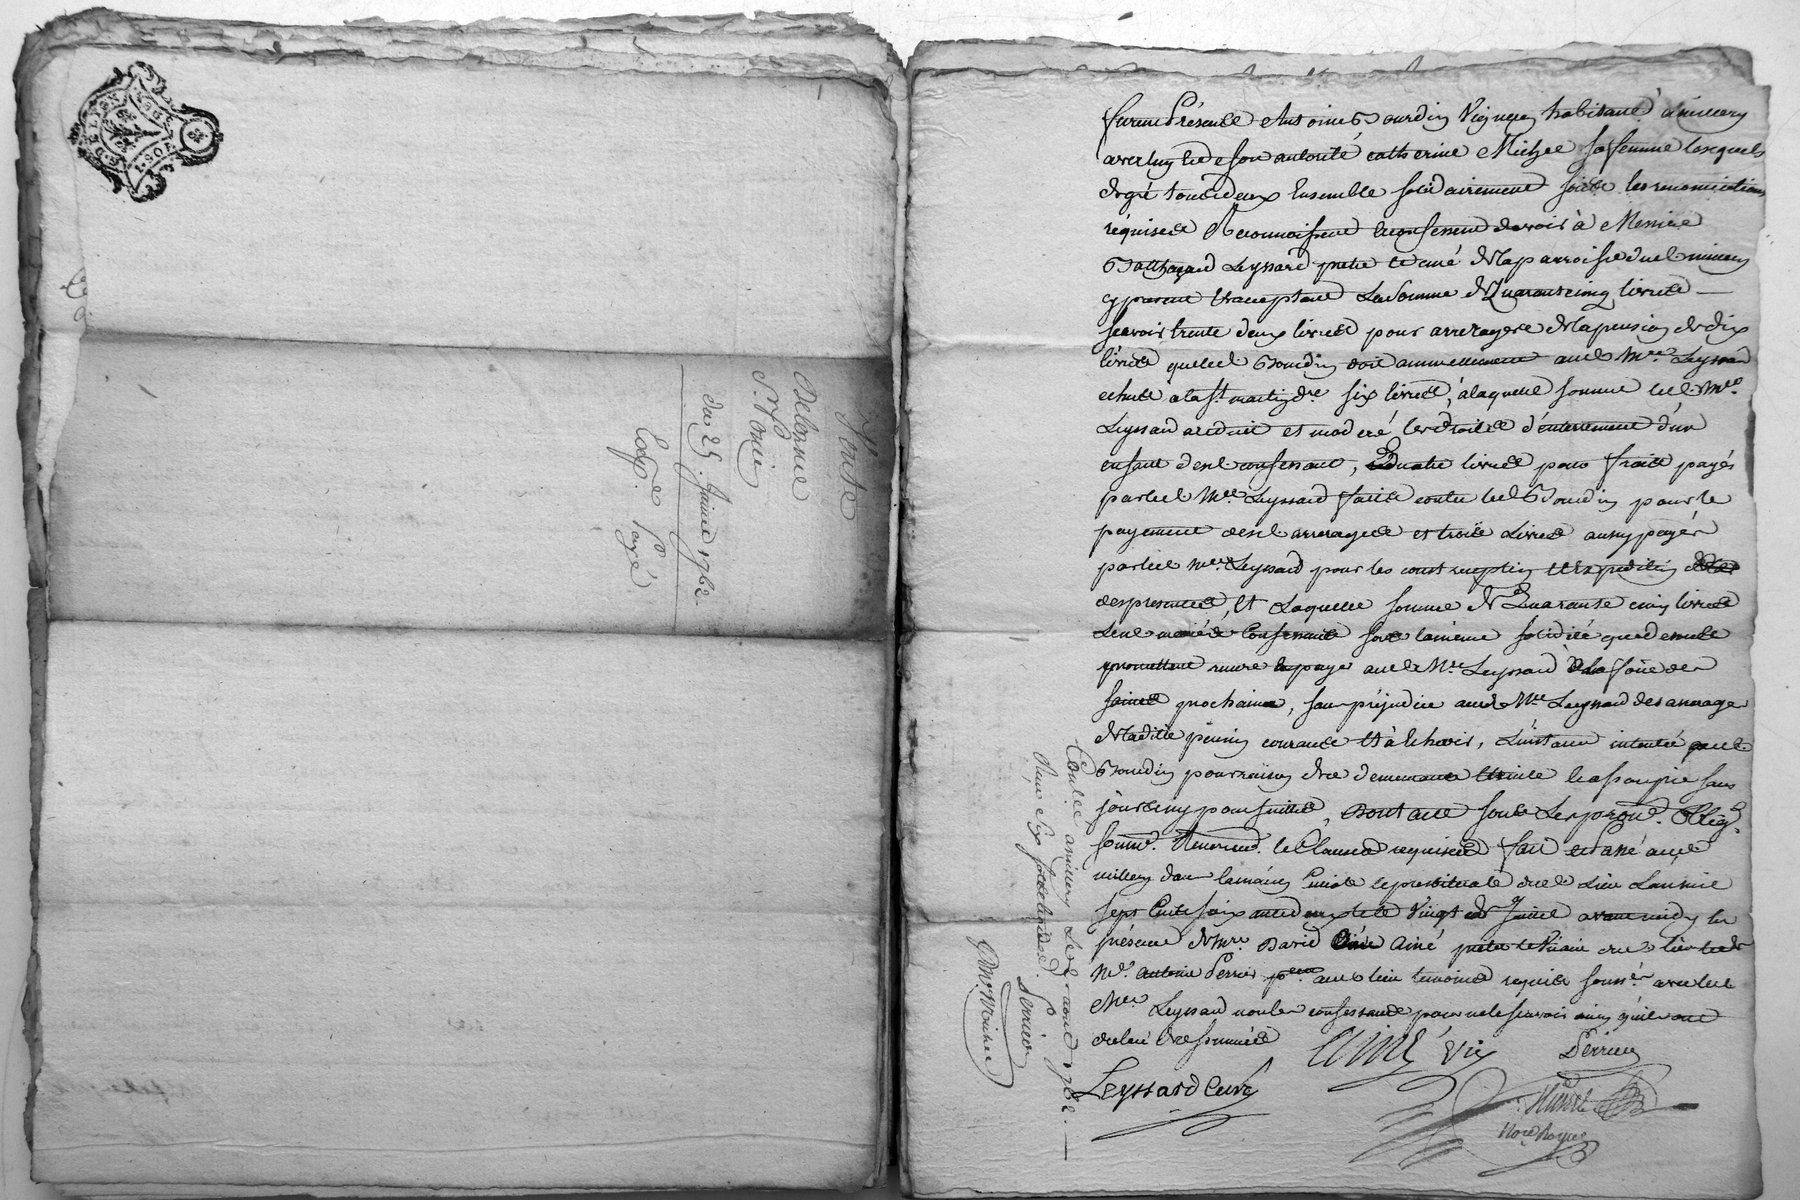 Vente
Delorme
du 25 Juin 1762
Exp. payé
furent Présents Antoine Bourdin Vigneron habitant à millery
avec luy et de son autorité catherine Michel sa femme lesquels
de gré tous deux Ensemble solidairement sous les renonciations
requises Reconnoissent et confessent devoir à Messire
Balthazard Leyssard pretre et curé de la parroisse dud millery
cy present et acceptant La Somme de Quarante cinq livres
scavoir trente deux livres pour arrerages de la pension de dix
livres que led Bourdin doit annuellement aud Mre Leyssard
echus à la St martin dre six livres, à laquelle somme led Mre
Leyssard a reduit et moderé les droits d'enterrement d'un
enfant desd confessants, Quatre livres pour frais payés
par led Mre Leyssard faits contre led Bourdin pour le
payement desd arrerages et trois Livres aussy payés
par led Mre Leyssard pour les controlle reception et expedition
des presentes, Et Laquelle somme de Quarante cinq livres
Lesd mariés Confessants sous la meme solidité que dessus
promettent payer aud Mre Leyssard à la foire des
saints prochaine, sans préjudice aud Mre Leyssard des arrerages
de ladite pension courants et à echeoir, L'instance intentée aud
Bourdin pour raison des demeurants assoupie sans
jours ny poursuittes, Dont acte sous Les prom. Oblig.
soum. Renonc. et Clauses requises fait et passé aud
millery dans la maison Curiale et presbiterale dud Lieu L'an mil
sept Cents soix. deux et le Vingt de Juin avant midy en
présence de Mre David Aimé pretre et Vicaire dud lieu et de
Mr. Antoine Perrier pr. aud lieu temoins requis sousr avec led
Mre Leyssard non les confessants pour ne le scavoir ainsy qu'ils ont
declaré de ce sommés
Leyssard Curé
Aimé Vic
Perrier
Nore Royal
Conllé à millery Le aoust 1762
Perrier